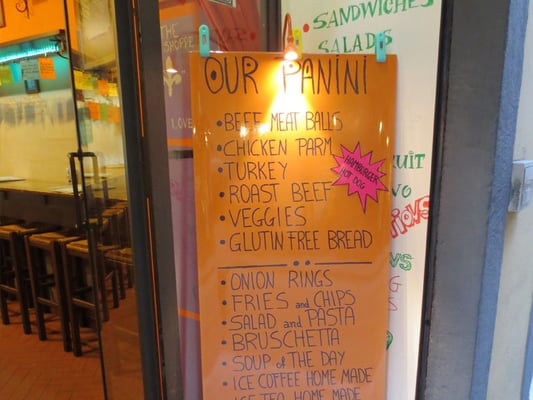 SANDWICHES
SALADS
THE
SHOPPE
LOVE
OUR PANINI
• BEEF MEAT BALLS
• CHICKEN PARM
• TURKEY
• ROAST BEEF
• VEGGIES
• GLUTIN FREE BREAD
HAMBURGER
HOT DOG
• ONION RINGS
• FRIES and CHIPS
• SALAD and PASTA
• BRUSCHETTA
• SOUP of THE DAY
• ICE COFFEE HOME MADE
ICE TEA HOME MADE